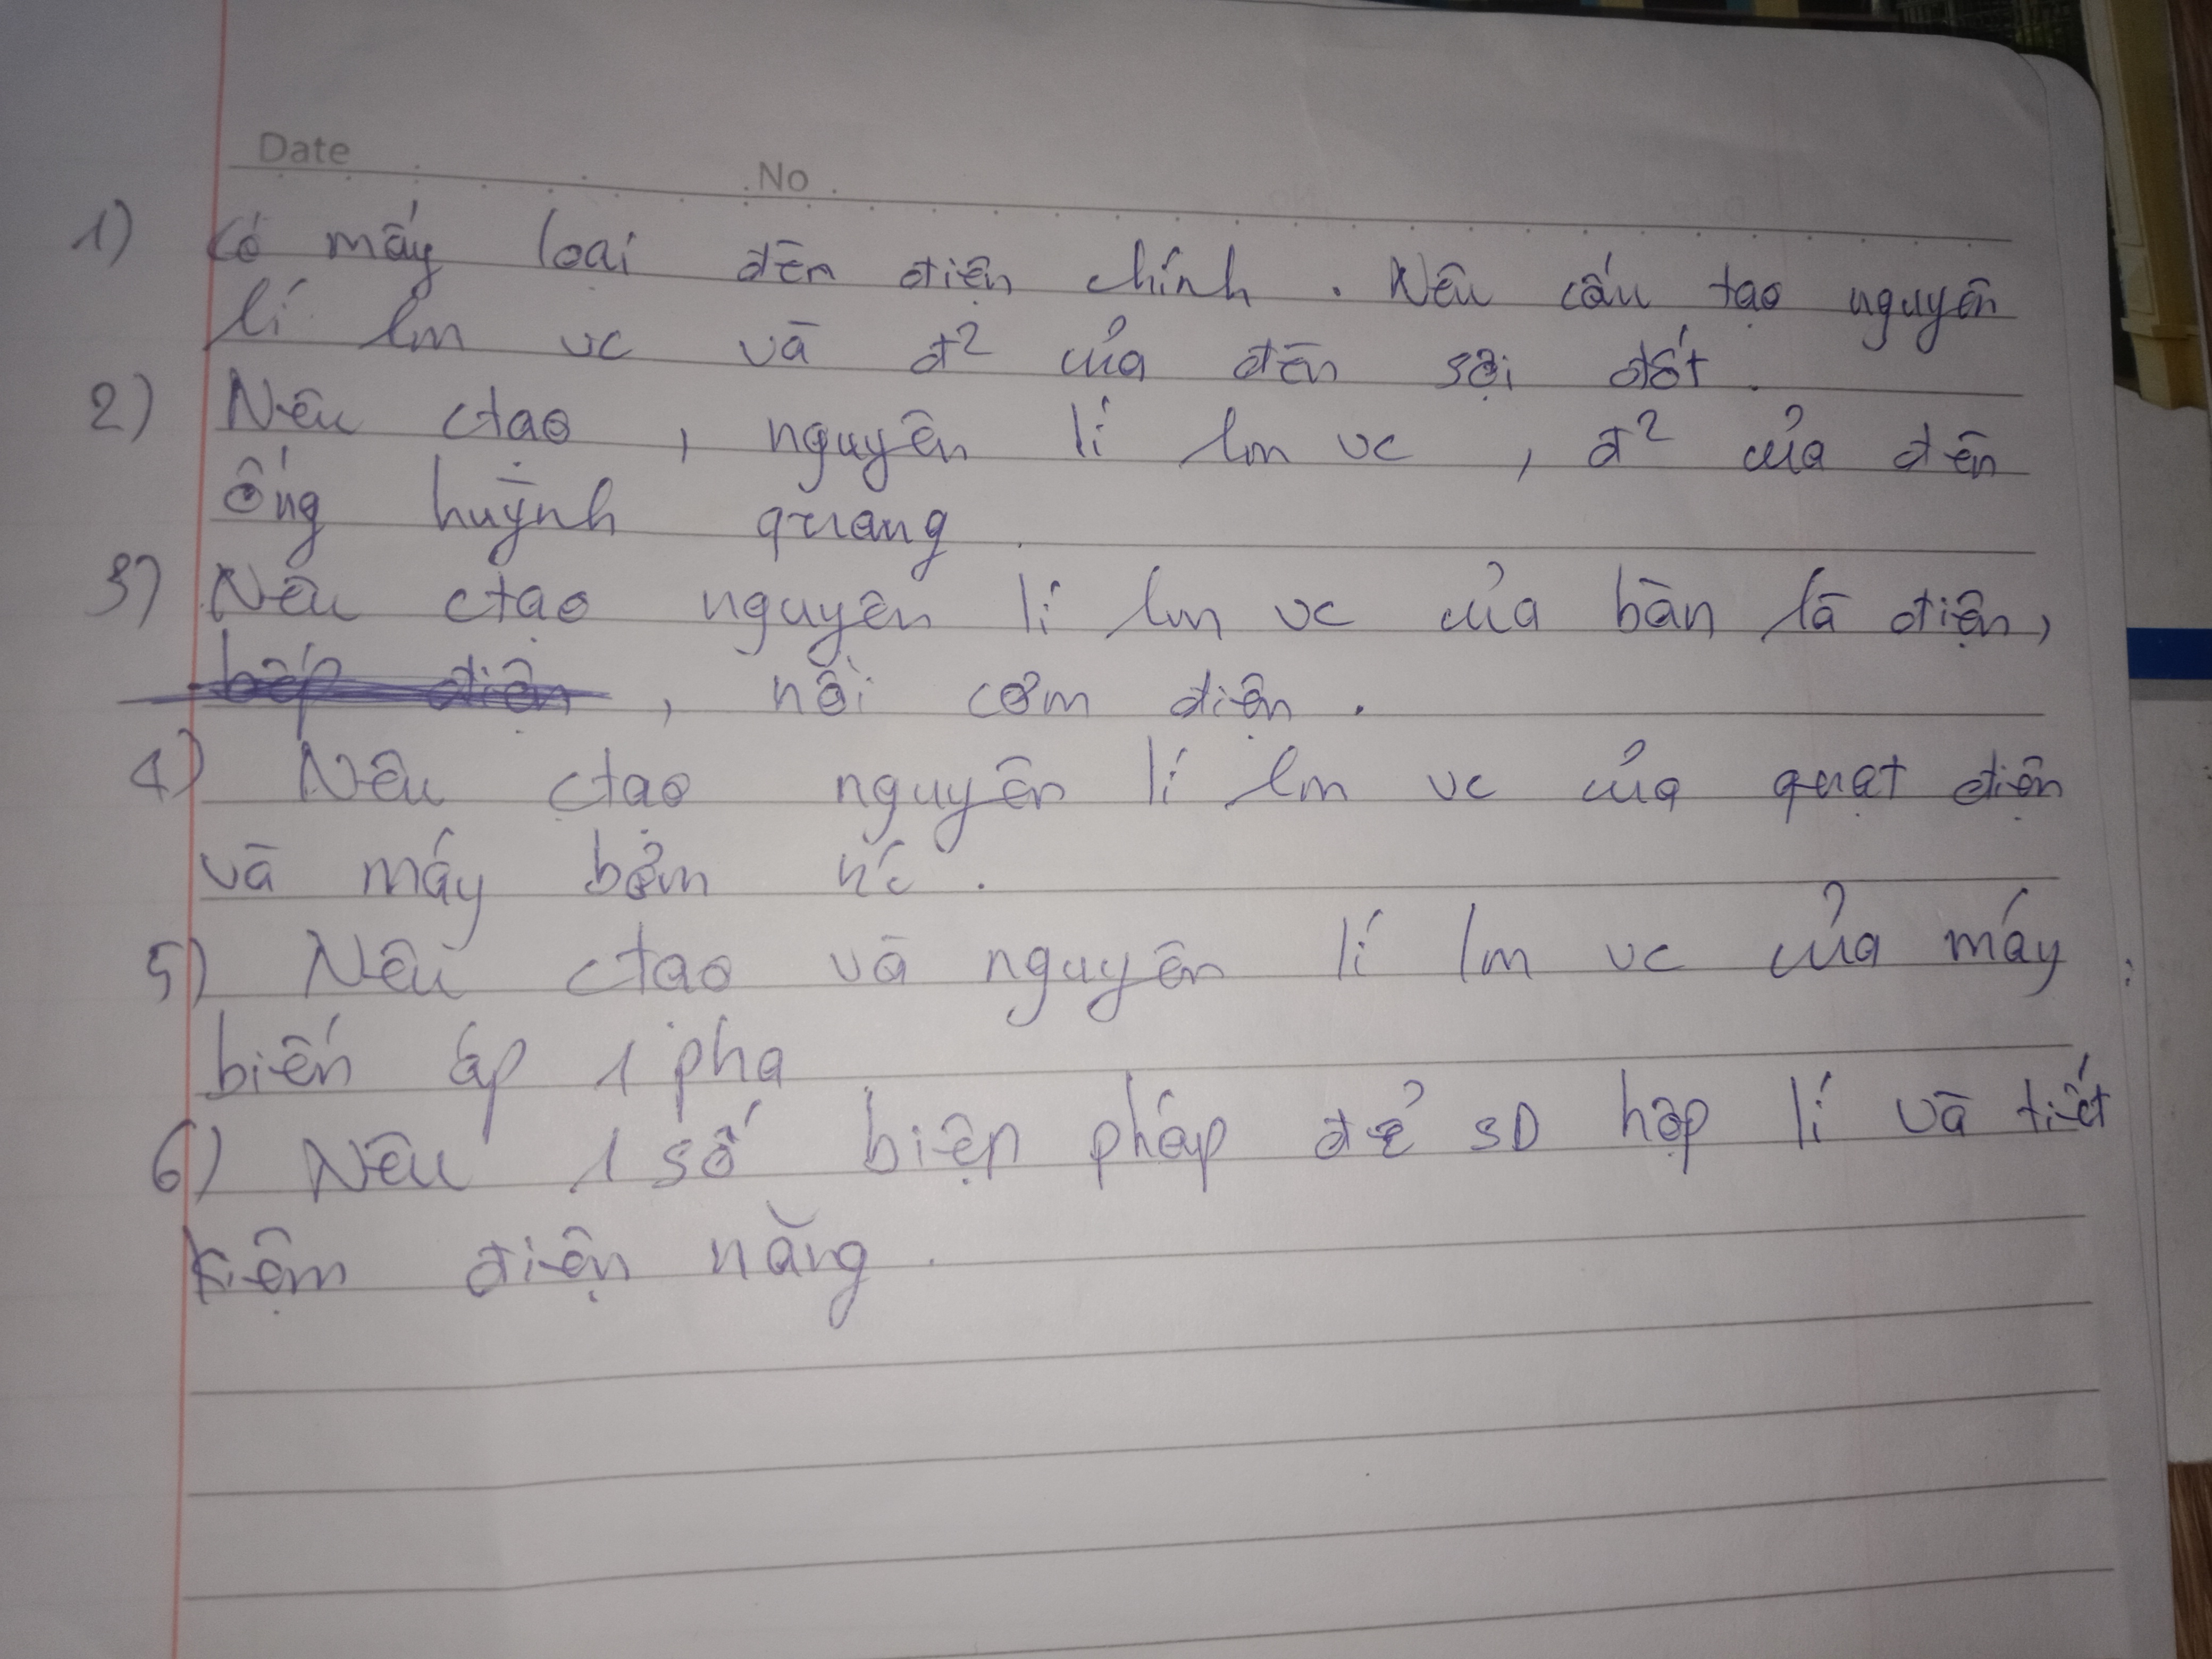 Date No
1) Có mấy loại đèn điện chính. Nêu cấu tạo nguyên
lí lm vc và đ² của đèn sợi đốt.
2) Nêu ctạo, nguyên lí lm vc, đ² của đèn
ống huỳnh quang.
3) Nêu ctạo nguyên lí lm vc của bàn là điện,
bếp điện, nồi cơm điện.
4) Nêu ctạo nguyên lí lm vc của quạt điện
và máy bơm nc.
5) Nêu ctạo và nguyên lí lm vc của máy
biến áp 1 pha
6) Nêu 1 số biện pháp để SD hợp lí và tiết
kiệm điện năng.